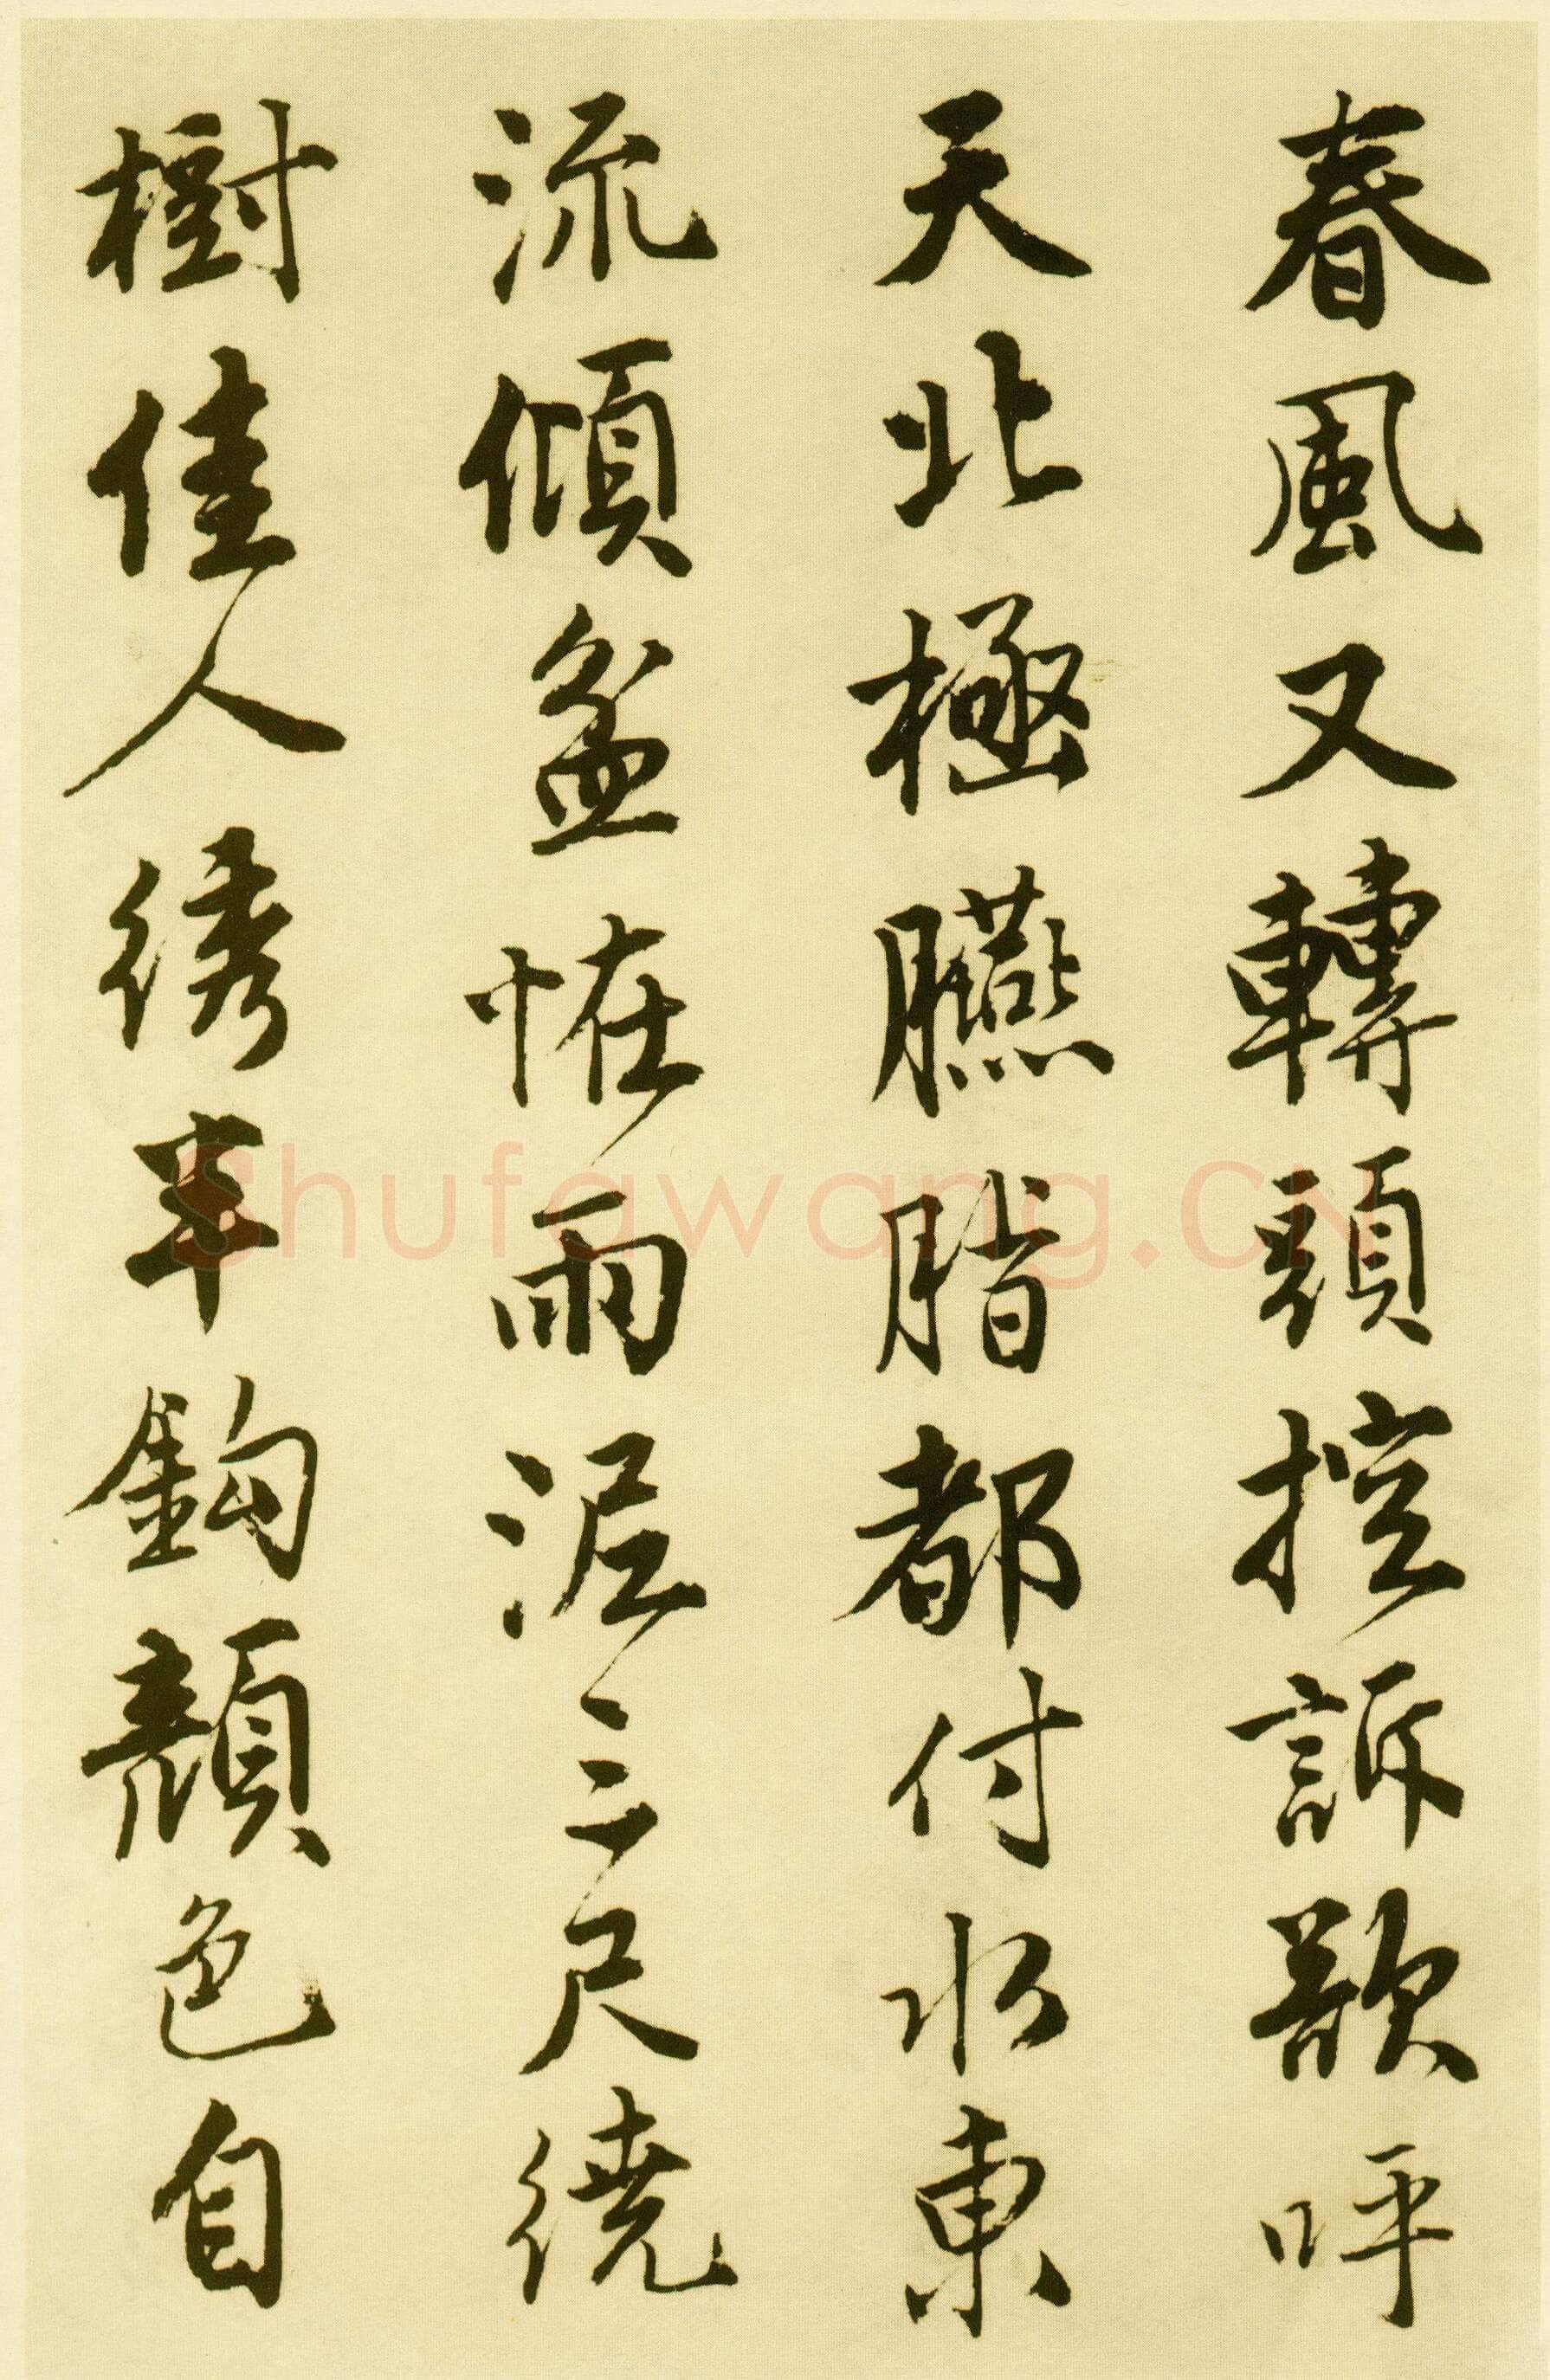 春風又轉頭控訴欲呼
天北極臙脂都付水東
流傾盆恠雨泥三尺繞
樹佳人綉半鈎顏色自
Shufawang.CN